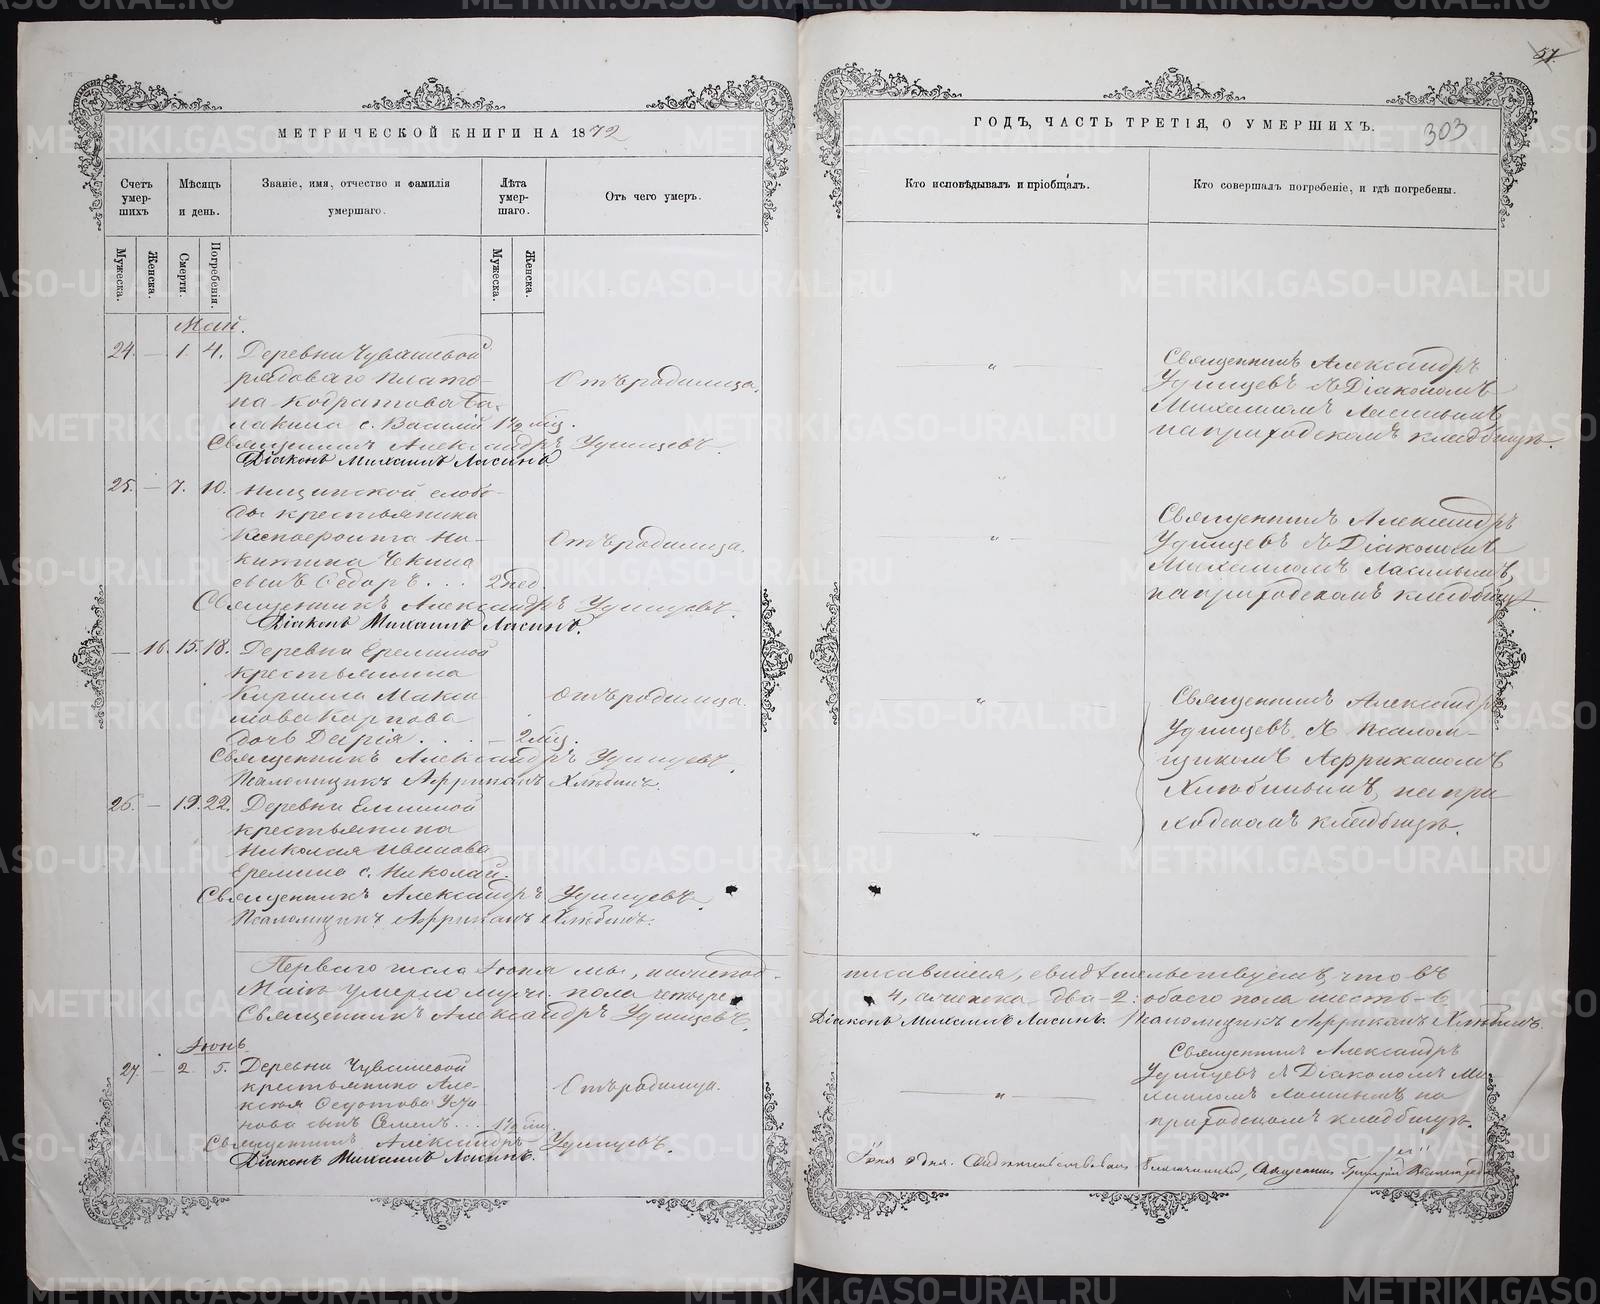 МЕТРИЧЕСКОЙ КНИГИ НА 1872
Счетъ умер-шихъ
Мѣсяцъ и день.
Званіе, имя, отчество и фамилія умершаго.
Лѣта умер-шаго.
Отъ чего умеръ.
Мужеска.
Женска.
Смерти.
Погребенія.
Мужеска.
Женска.
Май.
24. — 1. 4. Деревни Чувашевой
рядоваго Плато-
на Кодратова
с. Василій 1½ мѣс.
Отъ родимца.
Священникъ Александръ Удинцевъ.
Діаконъ Михаилъ Ласинъ
25. — 7. 10. Ницинской слобо-
ды крестьянина
Ксенофонта Ни-
китина Чекина
сынъ Ѳедоръ . . . 2 нед.
Отъ родимца.
Священникъ Александръ Удинцевъ.
Діаконъ Михаилъ Ласинъ.
— 16. 15. 18. Деревни Ереминой
крестьянина
Кирилла Макси
мова Карпова
дочь Дарія . . . — 2 мѣс.
Отъ родимца.
Священникъ Александръ Удинцевъ.
Псаломщикъ Африканъ Хлюбинъ.
26. — 19. 22. Деревни
крестьянина
Николая Иванова
Еремина с. Николай.
Священникъ Александръ Удинцевъ.
Псаломщикъ Африканъ Хлюбинъ.
Перваго числа Іюня мы, нижепод-
Маіѣ умерло муж. пола четыре
Священникъ Александръ Удинцевъ.
Іюнь
27. — 2. 5. Деревни Чувашевой
крестьянина Але-
ксѣя Ѳедотова
нова сынъ Семенъ . . 1½ мѣс.
Отъ родимца.
Священникъ Александръ Удинцевъ.
Діаконъ Михаилъ Ласинъ.
57.
ГОДЪ, ЧАСТЬ ТРЕТІЯ, О УМЕРШИХЪ.
303
Кто исповѣдывалъ и пріобщалъ.
Кто совершалъ погребеніе, и гдѣ погребены.
— „ —
Священникъ Александръ
Удинцевъ съ Діакономъ
Михаиломъ Ласинымъ,
на приходскомъ кладбищѣ.
— „ —
Священникъ Александръ
Удинцевъ съ Діакономъ
Михаиломъ Ласинымъ,
на приходскомъ кладбищѣ.
— „ —
Священникъ Александръ
Удинцевъ, съ Псалом-
щикомъ Африканомъ
Хлюбинымъ, на при
ходскомъ кладбищѣ.
— „ —
писавшіеся, свидѣтельствуемъ, что въ
4, а женска два - 2: обоего пола шесть - 6
Діаконъ Михаилъ Ласинъ. Псаломщикъ Африканъ Хлюбинъ.
— „ —
Священникъ Александръ
Удинцевъ съ Діакономъ Ми-
хаиломъ Ласинымъ на
приходскомъ кладбищѣ.
Іюня 9 дня. Свидѣтельствовалъ Благочинный, Священникъ Григорій
METRIKI.GASO-URAL.RU